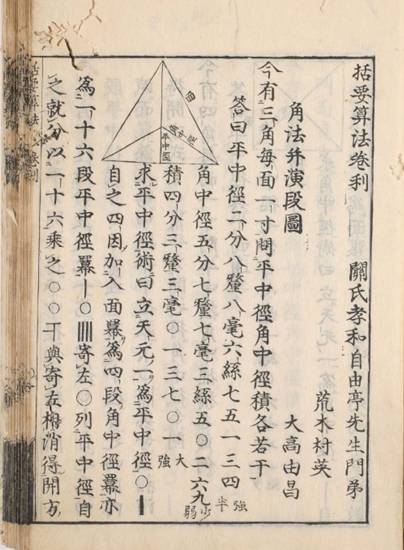 括要算法卷利
關氏孝和自由亭先生門弟
荒木村英
大高由昌
角法幷演段圖
今有三角每面一寸問平中徑角中徑積各若干
答曰平中徑二分八釐八毫六絲七五一三四強半
角中徑五分七釐七毫三絲五〇二六九少弱
積四分三釐三毫〇一三七〇一大強
求平中徑術曰立天元一爲平中徑〇|
自之四因加入面冪爲四段角中徑冪亦
爲一十六段平中徑冪|〇||||寄左〇列平中徑自
之就分以一十六乘之〇〇〒與寄左相消得開方
面
角中徑
平中徑
括要算法 卷利